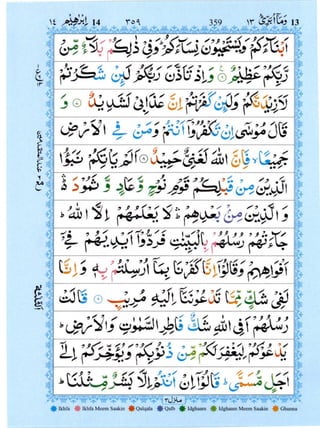 ١٤ اِبْرٰهِيْم 14 ٣٥٩ 359 وَمَآ اُبَرِّئُ ١٣ 13
اَبْنَآءَكُمْ وَيَسْتَحْيُوْنَ نِسَآءَكُمْ وَفِيْ ذٰلِكُمْ بَلَآءٌ مِّنْ
رَّبِّكُمْ عَظِيْمٌ وَاِذْ تَاَذَّنَ رَبُّكُمْ لَئِنْ شَكَرْتُمْ
لَاَزِيْدَنَّكُمْ وَلَئِنْ كَفَرْتُمْ اِنَّ عَذَابِيْ لَشَدِيْدٌ وَ
قَالَ مُوْسٰٓى اِنْ تَكْفُرُوْٓا اَنْتُمْ وَمَنْ فِي الْاَرْضِ
جَمِيْعًا فَاِنَّ اللّٰهَ لَغَنِيٌّ حَمِيْدٌ اَلَمْ يَاْتِكُمْ نَبَؤُا
الَّذِيْنَ مِنْ قَبْلِكُمْ قَوْمِ نُوْحٍ وَّعَادٍ وَّثَمُوْدَ
وَالَّذِيْنَ مِنْۢ بَعْدِهِمْ لَا يَعْلَمُهُمْ اِلَّا اللّٰهُ
جَآءَتْهُمْ رُسُلُهُمْ بِالْبَيِّنٰتِ فَرَدُّوْٓا اَيْدِيَهُمْ فِيْٓ
اَفْوَاهِهِمْ وَقَالُوْٓا اِنَّا كَفَرْنَا بِمَآ اُرْسِلْتُمْ بِهٖ وَاِنَّا
لَفِيْ شَكٍّ مِّمَّا تَدْعُوْنَنَآ اِلَيْهِ مُرِيْبٍ قَالَتْ
رُسُلُهُمْ اَفِي اللّٰهِ شَكٌّ فَاطِرِ السَّمٰوٰتِ وَالْاَرْضِ
يَدْعُوْكُمْ لِيَغْفِرَ لَكُمْ مِّنْ ذُنُوْبِكُمْ وَيُؤَخِّرَكُمْ اِلٰٓى
اَجَلٍ مُّسَمًّى قَالُوْٓا اِنْ اَنْتُمْ اِلَّا بَشَرٌ مِّثْلُنَا
منزل ٣
Ikhfa Ikhfa Meem Saakin Qalqala Qalb Idghaam Idghaam Meem Saakin Ghunna